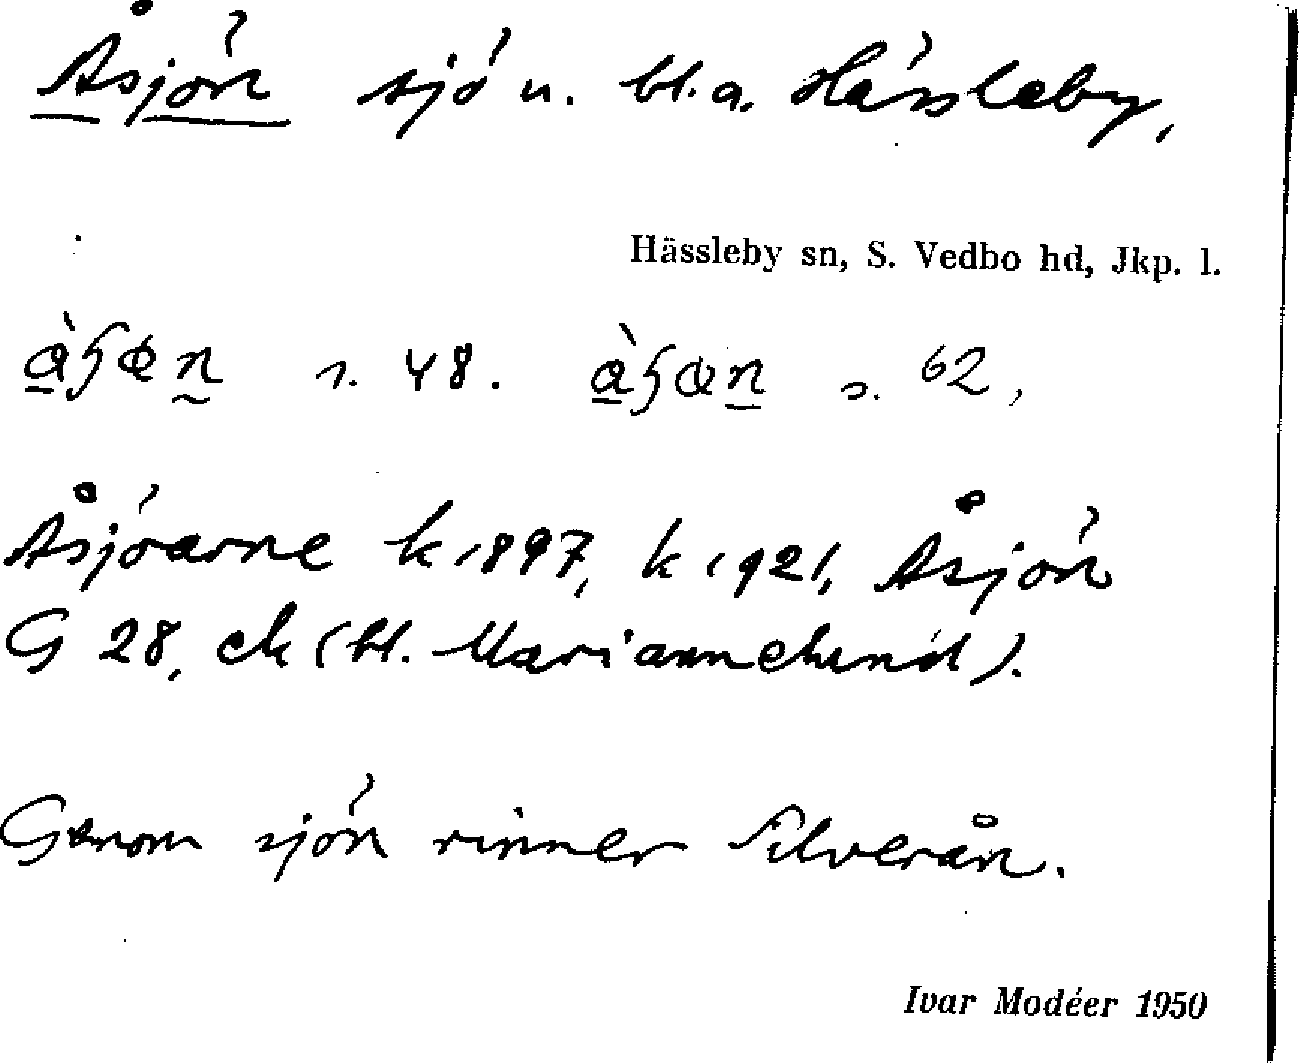 Åsjön sjö n. bl.a. Hässleby,
Hässleby sn, S. Vedbo hd, Jkp. l.
s. 48. s. 62,
Åsjöarne k 1897, k 1921, Åsjön
G 28, ek (bl. Mariannelund).
Genom sjön rinner Silverån.
Ivar Modéer 1950